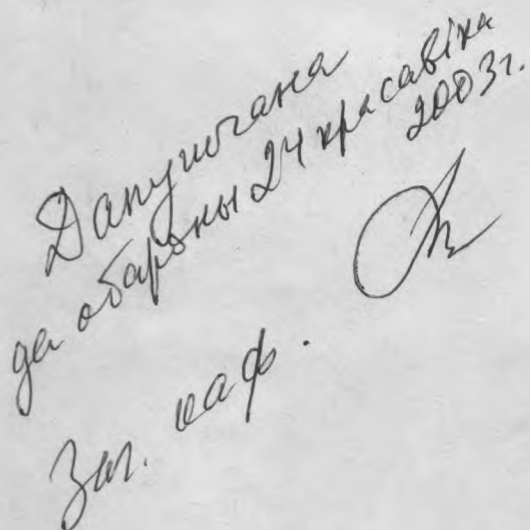 Дапушчана
да абароны 24 красавіка
2003г.
Заг. каф.